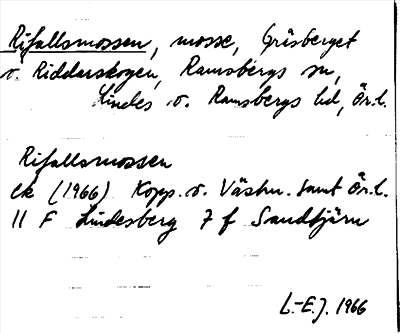 Rifallsmossen, mosse, Gräsberget
v. Riddarskogen, Ramsbergs sn,
Lindes o. Ramsbergs hd, Ör.l.
Rifallsmossen
ek (1966) Kopp. o. Västm. samt Ör.l.
11 F Lindesberg 7 f Sandtjärn
L.-E.J. 1966